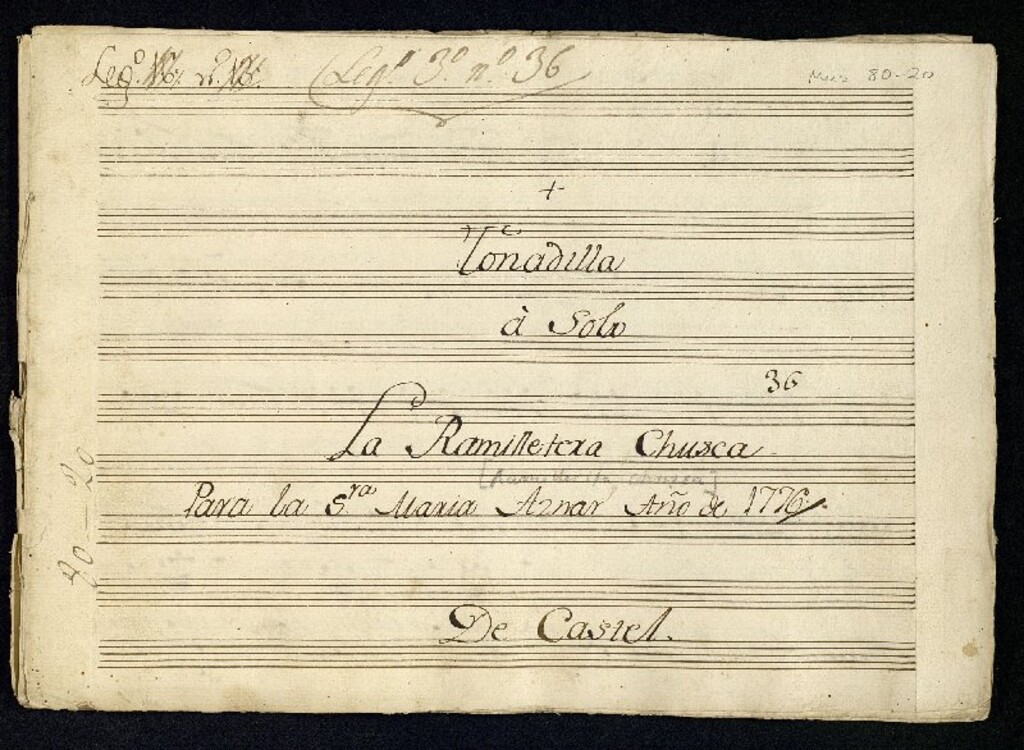 Leg.º nº
Leg.º 3º nº 36
Mus 80-20
+
Tonadilla
à Solo
36
La Ramilletera Chusca
Para la S.ra Maria Aznar Año de 1776
De Castel.
80-20